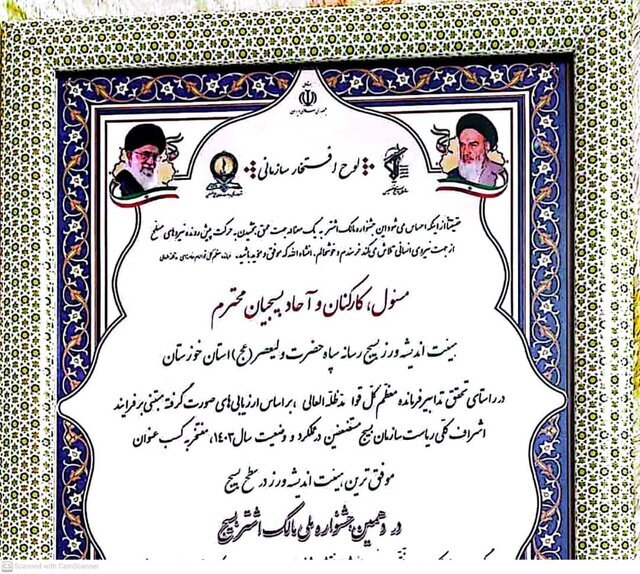 جمهوری اسلامی ایران
لوح افتخار سازمانی
حقیقتاً از اینکه احساس می‌شود این جشنواره مالک اشتر به یک معنا در جهت عمق بخشیدن به حرکت پیش رونده نیروهای مسلح
از جهت نیروی انسانی تلاش می‌کند خرسندم و خوشحالم، انشاءالله که موفق و مؤید باشید.
مسئول، کارکنان و آحاد بسیجیان محترم
هیئت اندیشه ورز بسیج رسانه سپاه حضرت ولیعصر (عج) استان خوزستان
در راستای تحقق تدابیر فرمانده معظم کل قوا مدظله العالی، براساس ارزیابی‌های صورت گرفته مبتنی بر فرایند
اشراف کلی ریاست سازمان بسیج مستضعفین در عملکرد و وضعیت سال ۱۴۰۳، مفتخر به کسب عنوان
موفق ترین، هیئت اندیشه ورز در سطح بسیج
در دهمین جشنواره ملی مالک اشتر بسیج
CS Scanned with CamScanner